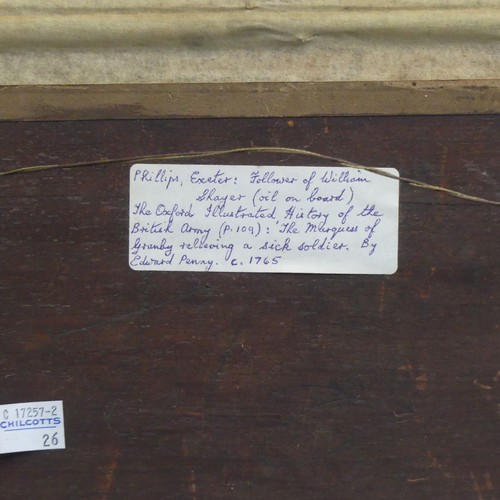 Phillips, Exeter: Follower of William
Shayer (oil on board)
The Oxford Illustrated History of the
British Army (p.109): 'The Marquess of
Granby relieving a sick soldier. By
Edward Penny. c. 1765
C 17257-2
CHILCOTTS
26